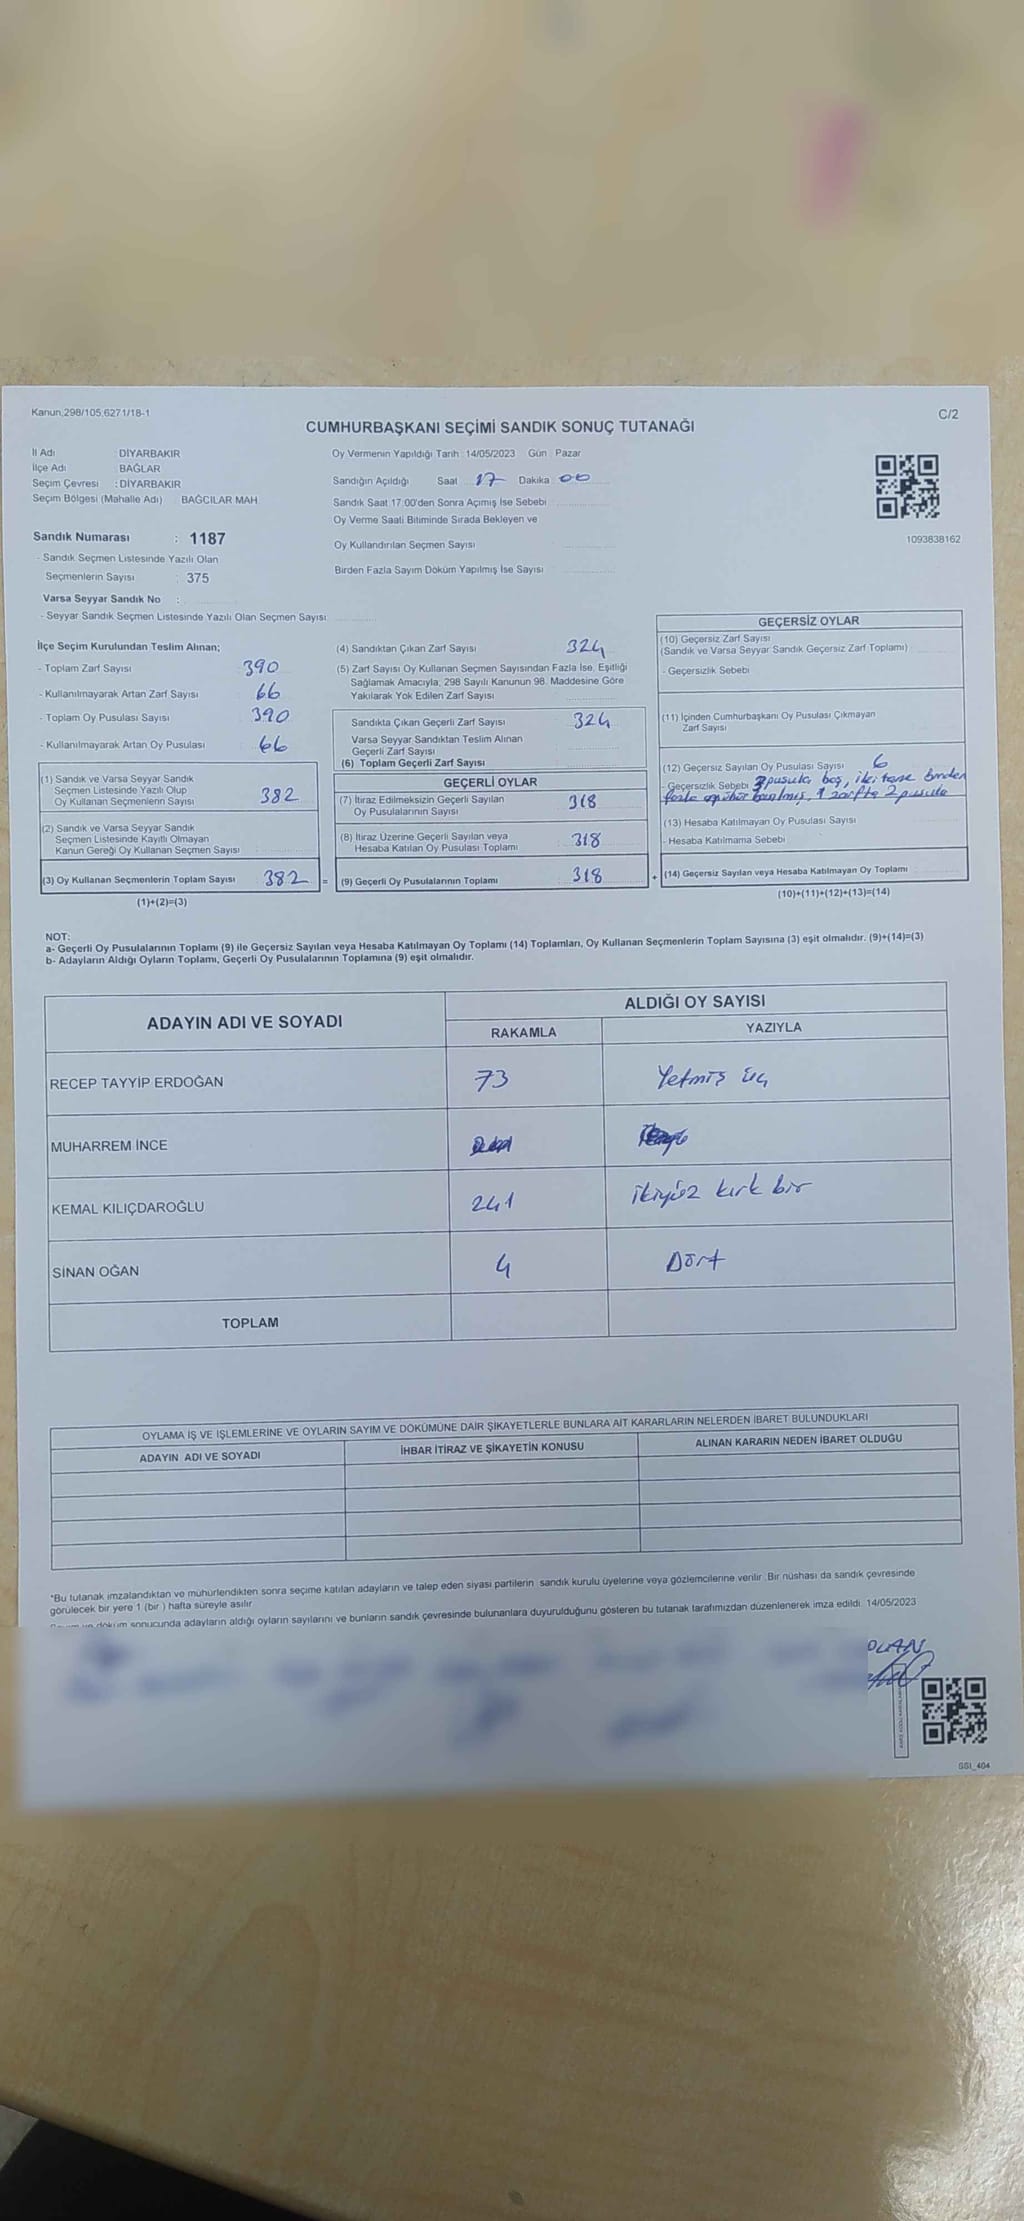 Kanun,298/105,6271/18-1
C/2
CUMHURBAŞKANI SEÇİMİ SANDIK SONUÇ TUTANAĞI
İl Adı : DİYARBAKIR
İlçe Adı : BAĞLAR
Seçim Çevresi : DİYARBAKIR
Seçim Bölgesi (Mahalle Adı) : BAĞCILAR MAH
Oy Vermenin Yapıldığı Tarih : 14/05/2023 Gün : Pazar
Sandığın Açıldığı Saat 17 Dakika 00
Sandık Saat 17:00'den Sonra Açımış İse Sebebi
Oy Verme Saati Bitiminde Sırada Bekleyen ve
Oy Kullandırılan Seçmen Sayısı
Birden Fazla Sayım Döküm Yapılmış İse Sayısı
1093838162
Sandık Numarası : 1187
- Sandık Seçmen Listesinde Yazılı Olan
Seçmenlerin Sayısı : 375
Varsa Seyyar Sandık No :
- Seyyar Sandık Seçmen Listesinde Yazılı Olan Seçmen Sayısı
İlçe Seçim Kurulundan Teslim Alınan;
- Toplam Zarf Sayısı 390
- Kullanılmayarak Artan Zarf Sayısı 66
- Toplam Oy Pusulası Sayısı 390
- Kullanılmayarak Artan Oy Pusulası 66
(1) Sandık ve Varsa Seyyar Sandık
Seçmen Listesinde Yazılı Olup
Oy Kullanan Seçmenlerin Sayısı 382
(2) Sandık ve Varsa Seyyar Sandık
Seçmen Listesinde Kayıtlı Olmayan
Kanun Gereği Oy Kullanan Seçmen Sayısı
(3) Oy Kullanan Seçmenlerin Toplam Sayısı 382 =
(1)+(2)=(3)
(4) Sandıktan Çıkan Zarf Sayısı 324
(5) Zarf Sayısı Oy Kullanan Seçmen Sayısından Fazla İse, Eşitliği
Sağlamak Amacıyla, 298 Sayılı Kanunun 98. Maddesine Göre
Yakılarak Yok Edilen Zarf Sayısı
Sandıkta Çıkan Geçerli Zarf Sayısı 324
Varsa Seyyar Sandıktan Teslim Alınan
Geçerli Zarf Sayısı
(6) Toplam Geçerli Zarf Sayısı
GEÇERLİ OYLAR
(7) İtiraz Edilmeksizin Geçerli Sayılan
Oy Pusulalarının Sayısı 318
(8) İtiraz Üzerine Geçerli Sayılan veya
Hesaba Katılan Oy Pusulası Toplamı 318
(9) Geçerli Oy Pusulalarının Toplamı 318 +
GEÇERSİZ OYLAR
(10) Geçersiz Zarf Sayısı
(Sandık ve Varsa Seyyar Sandık Geçersiz Zarf Toplamı)
- Geçersizlik Sebebi
(11) İçinden Cumhurbaşkanı Oy Pusulası Çıkmayan
Zarf Sayısı
(12) Geçersiz Sayılan Oy Pusulası Sayısı 6
- Geçersizlik Sebebi 3 pusula boş, iki tane birden
fazla mühür basılmış, 1 zarfta 2 pusula
(13) Hesaba Katılmayan Oy Pusulası Sayısı
- Hesaba Katılmama Sebebi
(14) Geçersiz Sayılan veya Hesaba Katılmayan Oy Toplamı
(10)+(11)+(12)+(13)=(14)
NOT:
a- Geçerli Oy Pusulalarının Toplamı (9) ile Geçersiz Sayılan veya Hesaba Katılmayan Oy Toplamı (14) Toplamları, Oy Kullanan Seçmenlerin Toplam Sayısına (3) eşit olmalıdır. (9)+(14)=(3)
b- Adayların Aldığı Oyların Toplamı, Geçerli Oy Pusulalarının Toplamına (9) eşit olmalıdır.
ADAYIN ADI VE SOYADI
ALDIĞI OY SAYISI
RAKAMLA YAZIYLA
RECEP TAYYİP ERDOĞAN 73 Yetmiş üç
MUHARREM İNCE
KEMAL KILIÇDAROĞLU 241 ikiyüz kırk bir
SİNAN OĞAN 4 Dört
TOPLAM
OYLAMA İŞ VE İŞLEMLERİNE VE OYLARIN SAYIM VE DÖKÜMÜNE DAİR ŞİKAYETLERLE BUNLARA AİT KARARLARIN NELERDEN İBARET BULUNDUKLARI
ADAYIN ADI VE SOYADI İHBAR İTİRAZ VE ŞİKAYETİN KONUSU ALINAN KARARIN NEDEN İBARET OLDUĞU
*Bu tutanak imzalandıktan ve mühürlendikten sonra seçime katılan adayların ve talep eden siyasi partilerin sandık kurulu üyelerine veya gözlemcilerine verilir. Bir nüshası da sandık çevresinde
görülecek bir yere 1 (bir ) hafta süreyle asılır
döküm sonucunda adayların aldığı oyların sayılarını ve bunların sandık çevresinde bulunanlara duyurulduğunu gösteren bu tutanak tarafımızdan düzenlenerek imza edildi. 14/05/2023
SSI_404